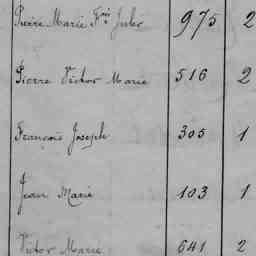 Pierre Marie Fois Jules 975 2
Pierre Victor Marie 516 2
François Joseph 305 1
Jean Marie 103 1
Victor Marie 641 2